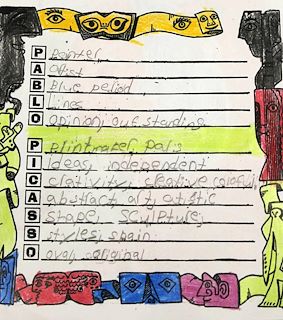 P Painter
A Artist
B Blue period
L Lines
O Opinion, outstanding
P Plintmaker, pals
I Ideas, independent
C creative, colorful
A abstract, art, artistic
S Shape, Sculpture,
S styles, spain
O oval, original